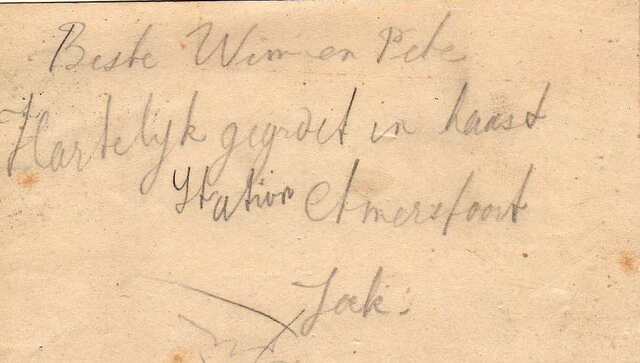 Beste Wim en Pete
Hartelyk gegroet in haast
Station Amersfoort
Joek.